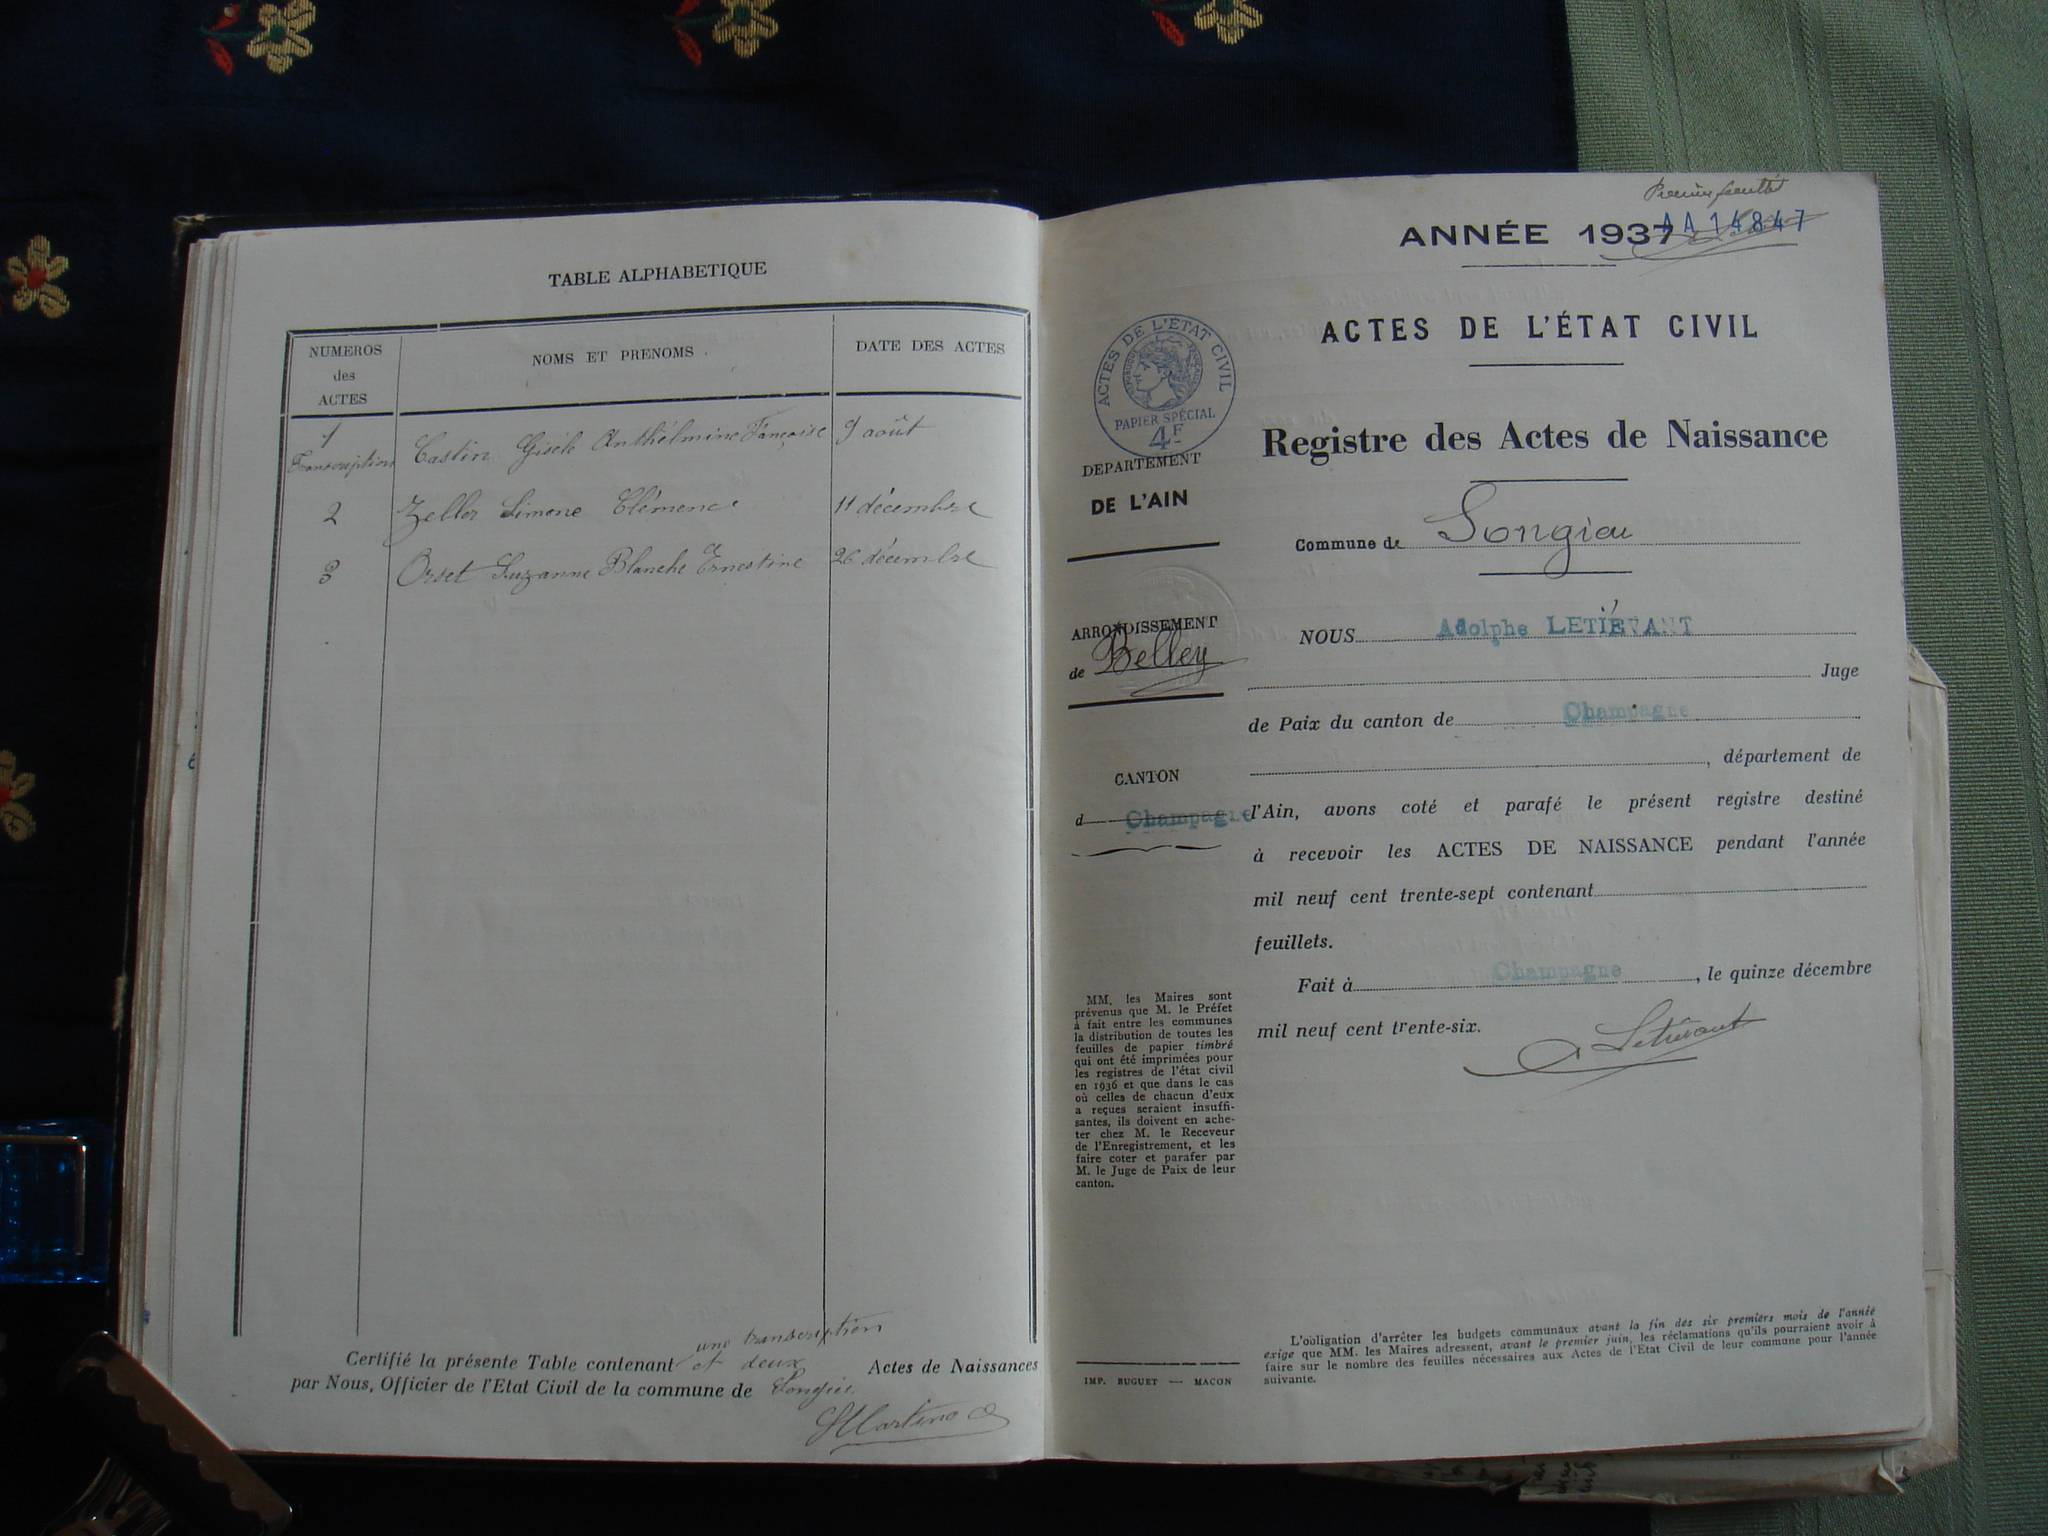 TABLE ALPHABETIQUE
NUMEROS
des
ACTES
NOMS ET PRENOMS
DATE DES ACTES
1
Transcription
Castin Gisèle Anthelmine Françoise
9 août
2
Zeller Simone Clémence
11 décembre
3
Orset Suzanne Blanche Ernestine
26 décembre
une transcription
Certifié la présente Table contenant et deux Actes de Naissances
par Nous, Officier de l'Etat Civil de la commune de Songieu
Premier feuillet
ANNÉE 1937
AA 14847
ACTES DE L'ÉTAT CIVIL
ACTES DE L'ÉTAT CIVIL
RÉPUBLIQUE FRANÇAISE
PAPIER SPÉCIAL
4F
Registre des Actes de Naissance
DEPARTEMENT
DE L'AIN
Commune de Songieu
ARRONDISSEMENT
de Belley
NOUS Adolphe LETIÉVANT
Juge
de Paix du canton de Champagne
, département de
CANTON
d Champagne
l'Ain, avons coté et parafé le présent registre destiné
à recevoir les ACTES DE NAISSANCE pendant l'année
mil neuf cent trente-sept contenant
feuillets.
Fait à Champagne, le quinze décembre
mil neuf cent trente-six.
Letiévant
MM. les Maires sont
prévenus que M. le Préfet
à fait entre les communes
la distribution de toutes les
feuilles de papier timbré
qui ont été imprimées pour
les registres de l'état civil
en 1936 et que dans le cas
où celles de chacun d'eux
a reçues seraient insuffi-
santes, ils doivent en ache-
ter chez M. le Receveur
de l'Enregistrement, et les
faire coter et parafer par
M. le Juge de Paix de leur
canton.
IMP. BUGUET — MACON
L'obligation d'arrêter les budgets communaux avant la fin des six premiers mois de l'année
exige que MM. les Maires adressent, avant le premier juin, les réclamations qu'ils pourraient avoir à
faire sur le nombre des feuilles nécessaires aux Actes de l'Etat Civil de leur commune pour l'année
suivante.